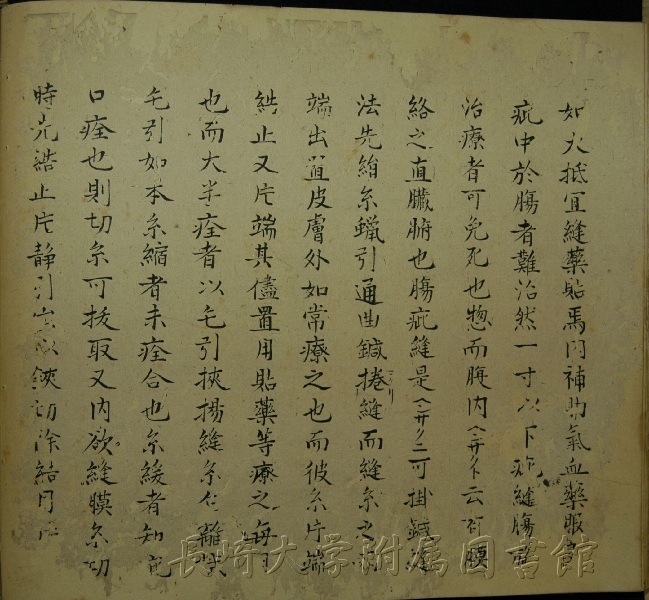 如大抵冝縫藥貼焉内補助氣血藥服
疵中於膓者難治然一寸以下疵縫膓
治療者可免死也惣而腹内ヘ云有膜
絡之直臟腑也膓疵縫是可掛鍼縫
法先絹糸蠟引通曲鍼捲縫而縫糸之両
端出置皮膚外如常療之也而彼糸片端
結止又片端其儘置用貼藥等療之毎日
也而大半痊者以毛引挾揚縫糸離
毛引如本糸縮者未痊合也糸緩者知疵
口痊也則切糸可抜取又内欲縫膜糸切
時先結止片静引出以鋏切除結目
長崎大学附属図書館